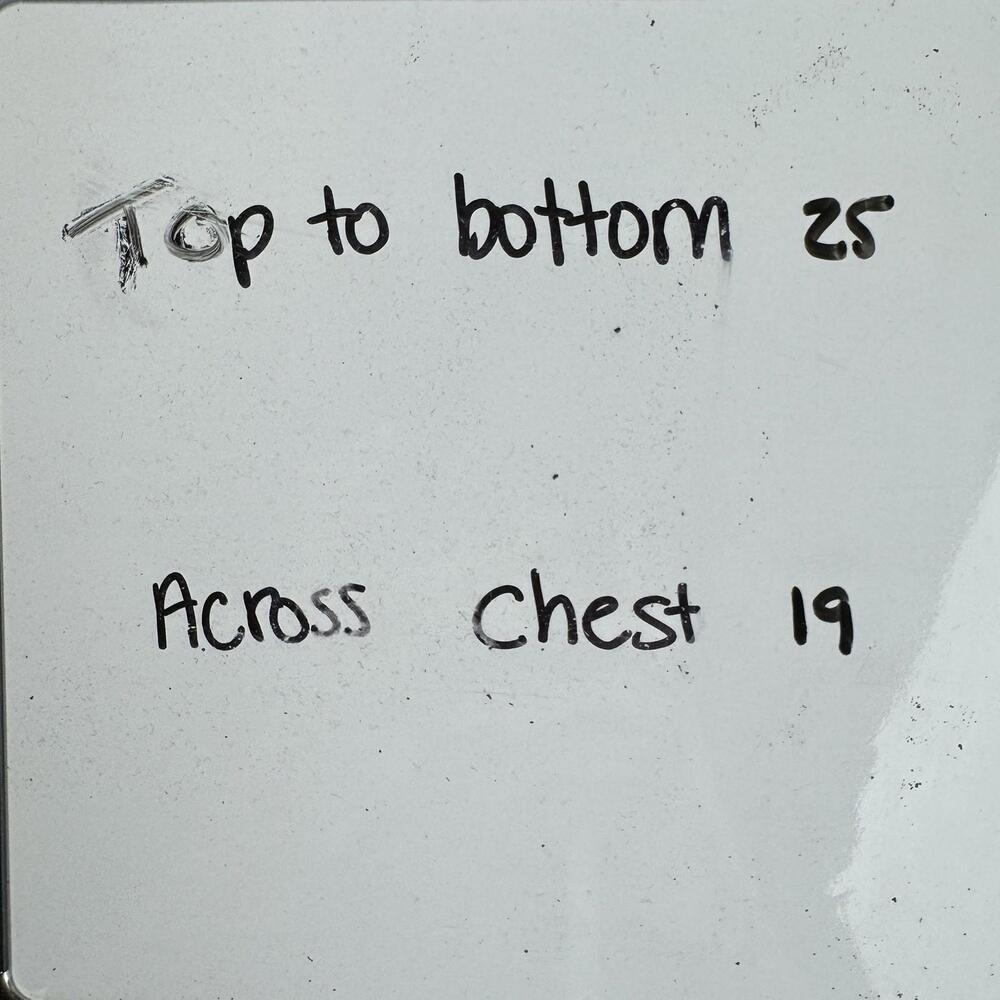 Top to bottom 25
Across Chest 19